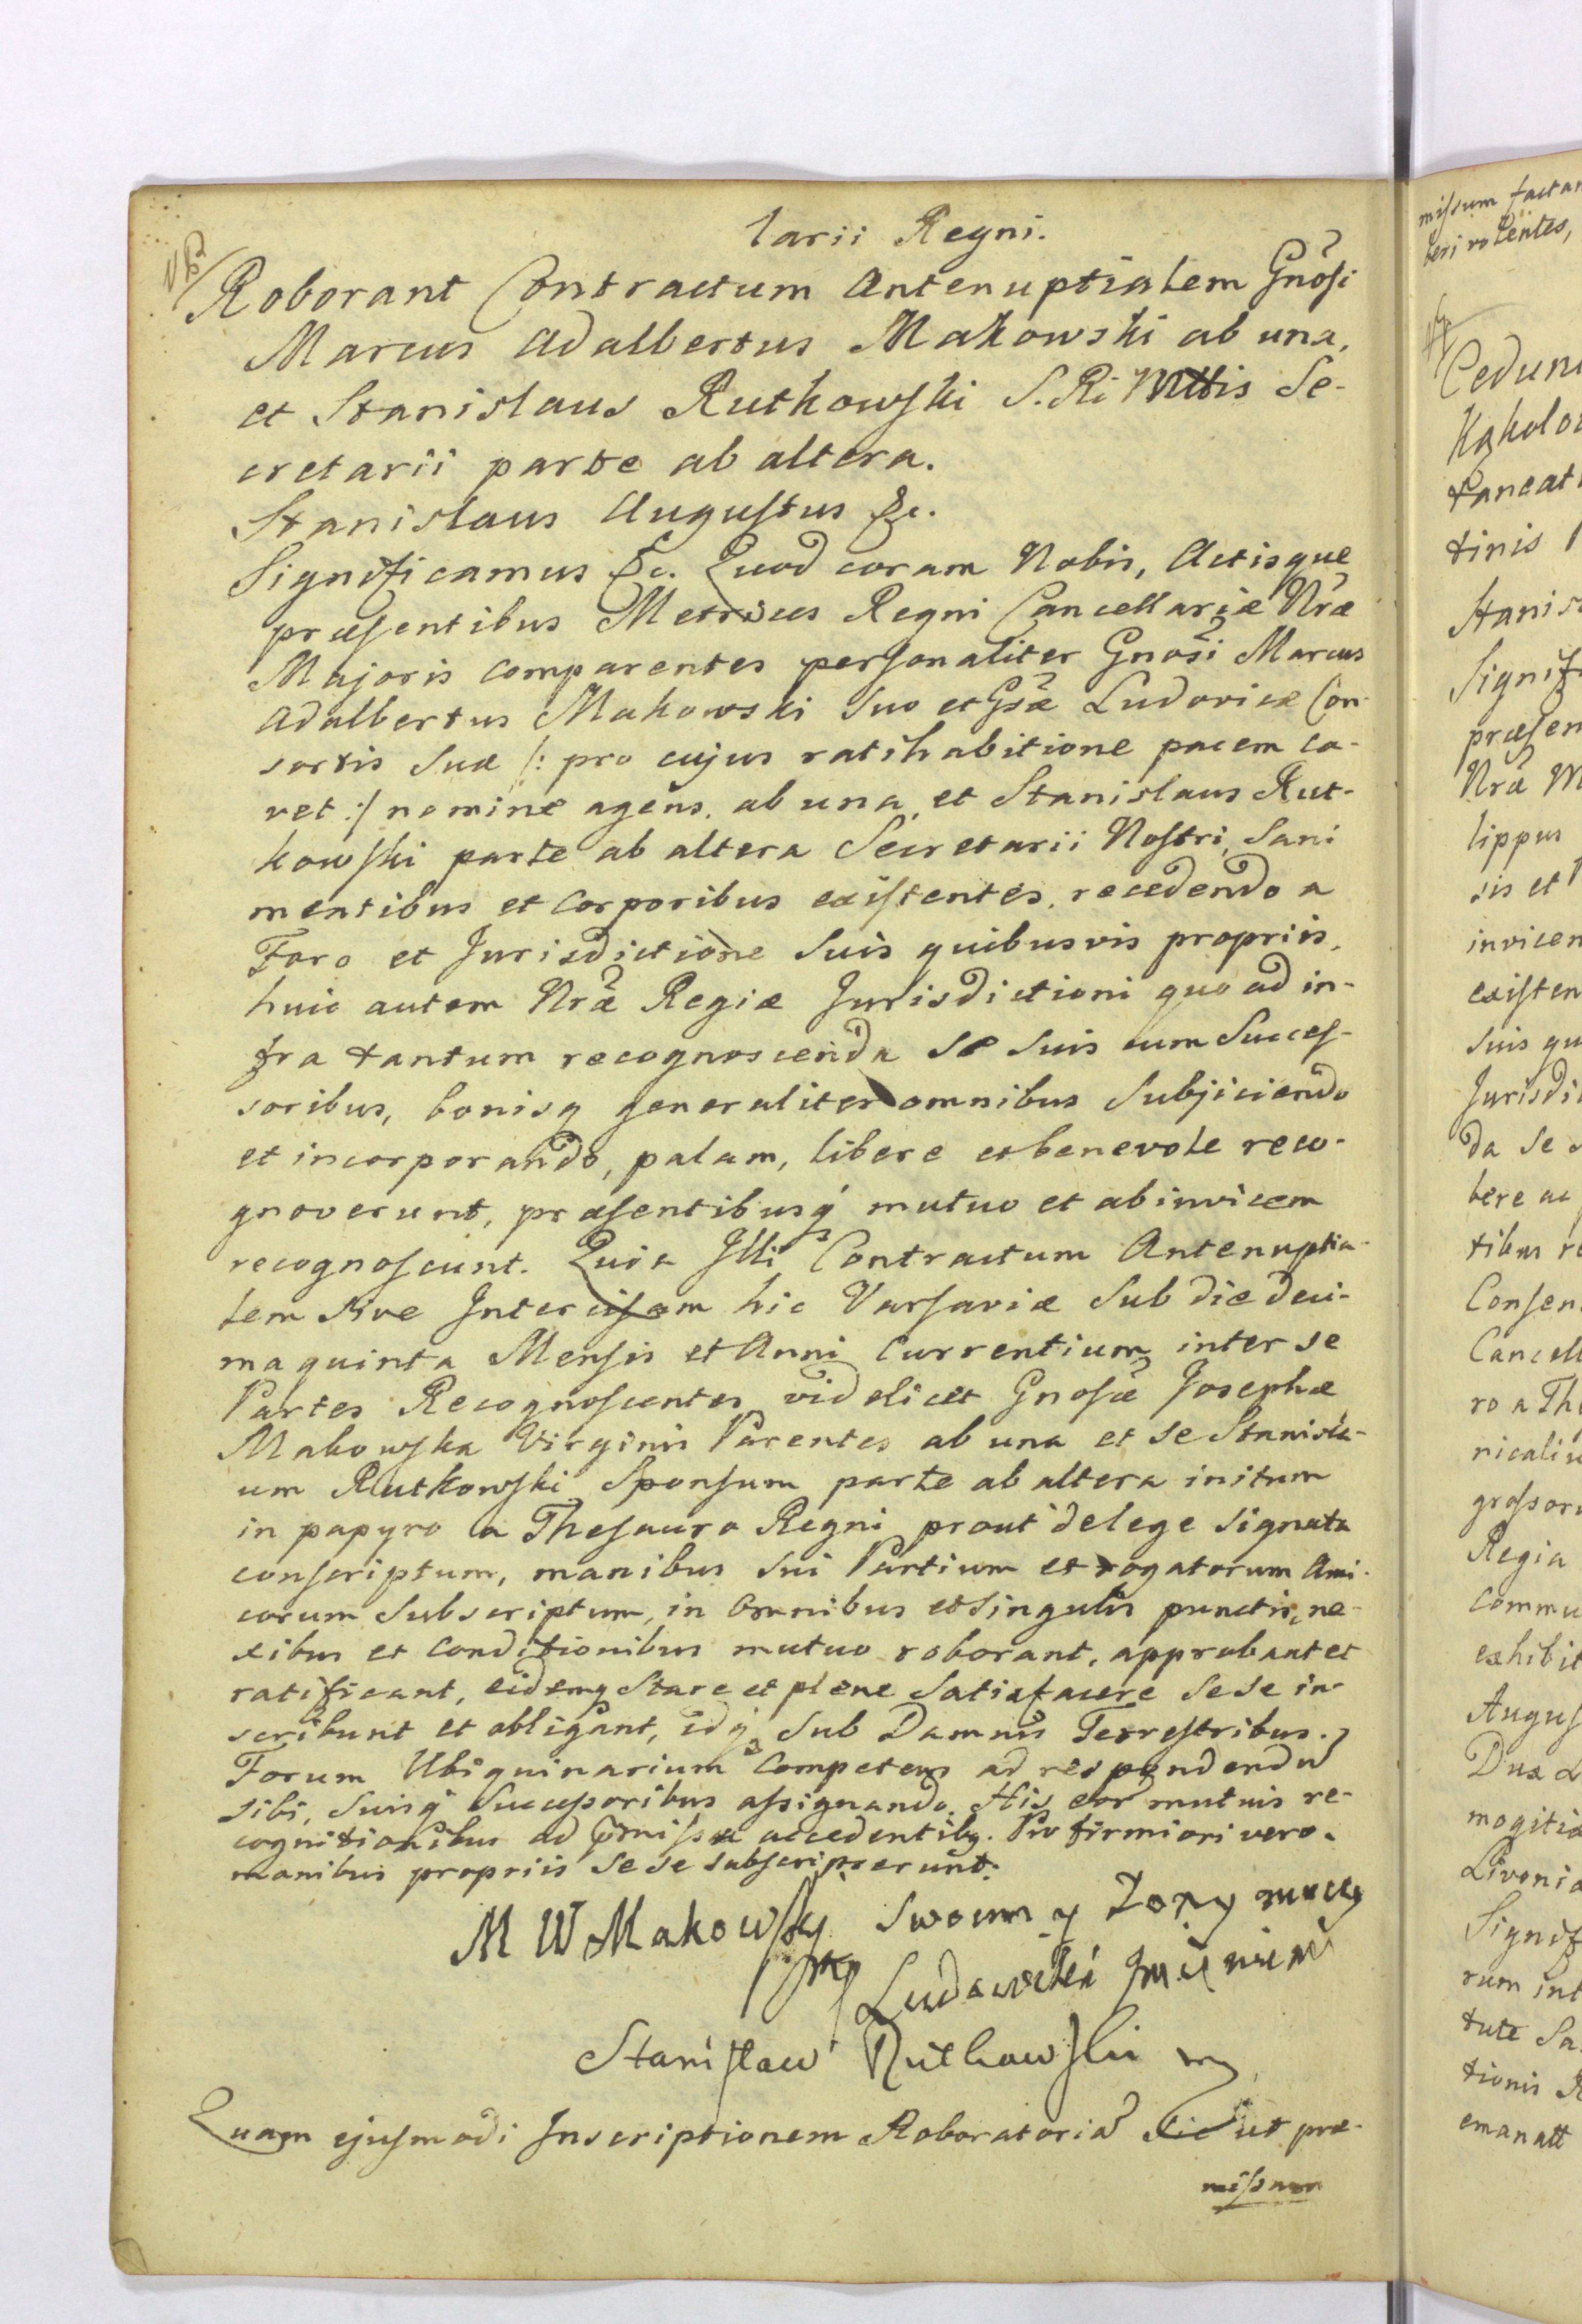 larii Regni.
Roborant Contractum Antenuptialem Gnosi
Marcus Adalbertus Makowski ab una,
et Stanislaus Rutkowski S. R. Mttis Se-
cretarii parte ab altera.
Stanislaus Augustus &c.
Significamus &c. Quod coram Nobis, Actisque
præsentibus Metrices Regni Cancellariæ Nræ
Majoris comparentes personaliter Gnosi Marcus
Adalbertus Makowski suo et Gsæ Ludovicæ Con-
sortis suæ /: pro cujus ratihabitione pacem ca-
vet :/ nomine agens, ab una, et Stanislaus Rut-
kowski parte ab altera Secretarii Nostri, sani
mentibus et corporibus existentes, recedendo a
Foro et Jurisdictione suis quibusvis propriis,
huic autem Nræ Regiæ Jurisdictioni quo ad in-
fra tantum recognoscenda se suis cum Succes-
soribus, bonisq generaliter omnibus subjiciendo
et incorporando, palam, libere et benevole reco-
gnoverunt, præsentibusq mutuo et ab invicem
recognoscunt. Quia Illi Contractum Antenuptia-
lem sive Intercisam hic Varsaviæ sub die deci-
ma quinta Mensis et Anni Currentium inter se
Partes Recognoscentes videlicet Gnosæ Josephæ
Makowska Virginis Parentes ab una et se Stanisla-
um Rutkowski Sponsum parte ab altera initum
in papyro a Thesauro Regni prout de lege signata
conscriptum, manibus sui Partium et rogatorum Ami-
corum subscriptum, in omnibus et singulis punctis, ne-
xibus et conditionibus mutuo roborant, approbant et
ratificant, eidemq stare et plene satisfacere sese in-
scribunt et obligant, idq sub Damnis Terrestribus.
Forum Ubiquinarium competens ad respondendũ
sibi, suisq Successoribus assignando. His eor mutuis re-
cognitionibus ad pmissa accedentibq. Pro firmiori vero.
manibus propriis sese subscripserunt.
M W Makowsky swoim y Zony moiey
mp Ludowiki Imieniem
Stanisław Rutkowski mp
Quam ejusmodi Inscriptionem Roboratoriã sic ut præ-
missum
missum factam
beri volentes,
Cedunt
tinis
Stanis
Signif
præsen
Nræ M
lippus
sis et
invicem
existen
suis qu
Jurisdi
da se s
bere ac
tibus re
Consen
Cancell
ro a The
nicaliu
grossoru
Regia
commu
exhibit
Augus
Dux L
mogitiæ
Livoniæ
Signif
rum int
tute Sa
tionis R
emanatt